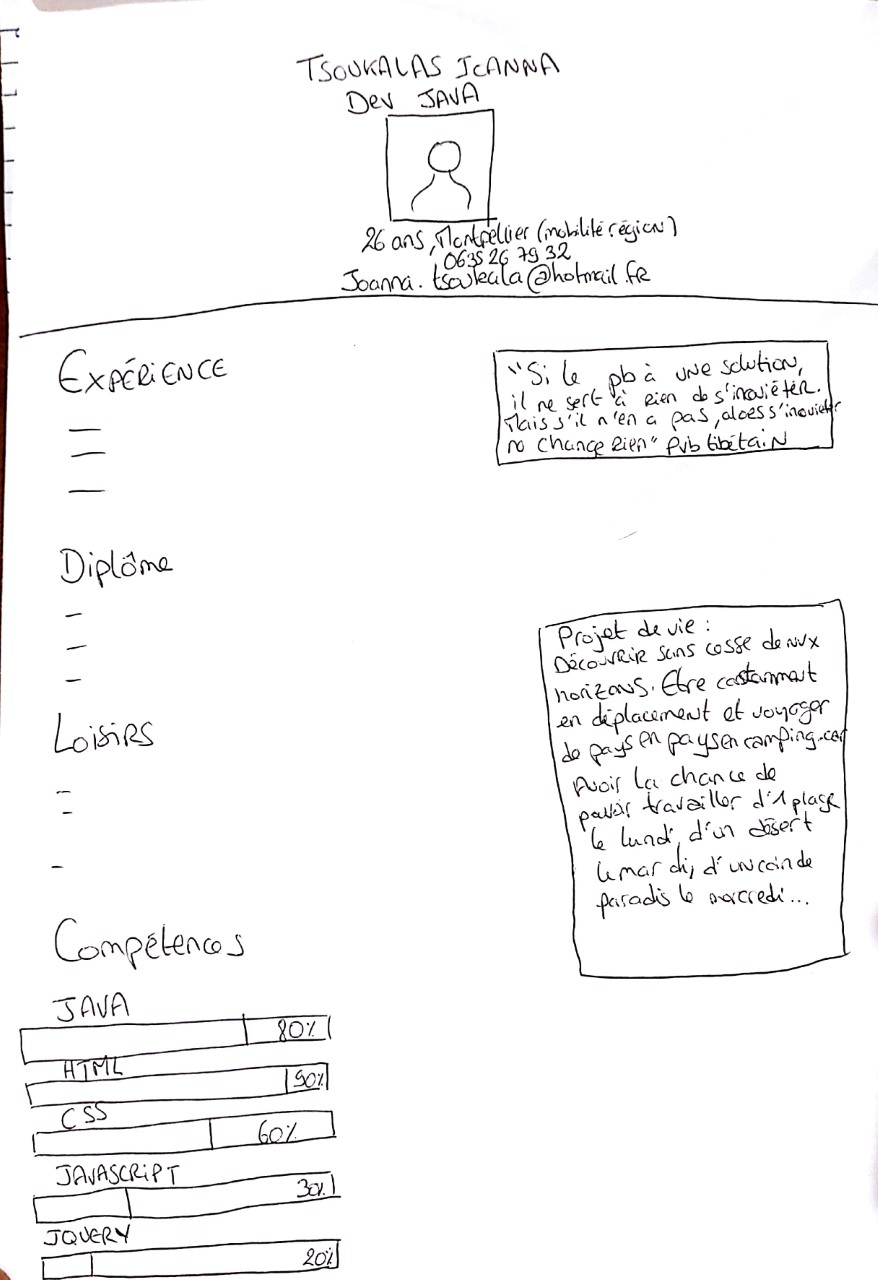 TSOUKALAS IOANNA
Dev JAVA
26 ans, Montpellier (mobilité région)
06 35 26 79 32
Joanna.tsoukala@hotmail.fr
EXPÉRIENCE
"Si le pb à une solution,
il ne sert à rien de s'inquiéter.
Mais s'il n'en a pas, alors s'inquiéter
ne change rien" Pvb tibétain
Diplôme
Projet de vie :
Découvrir sans cesse de nvx
horizons. Etre constamment
en déplacement et voyager
de pays en pays en camping-car
Avoir la chance de
pouvoir travailler d'1 plage
le lundi, d'un désert
le mardi, d'un coin de
paradis le mercredi...
Loisirs
Compétences
JAVA
80%
HTML
90%
CSS
60%
JAVASCRIPT
30%
JQUERY
20%